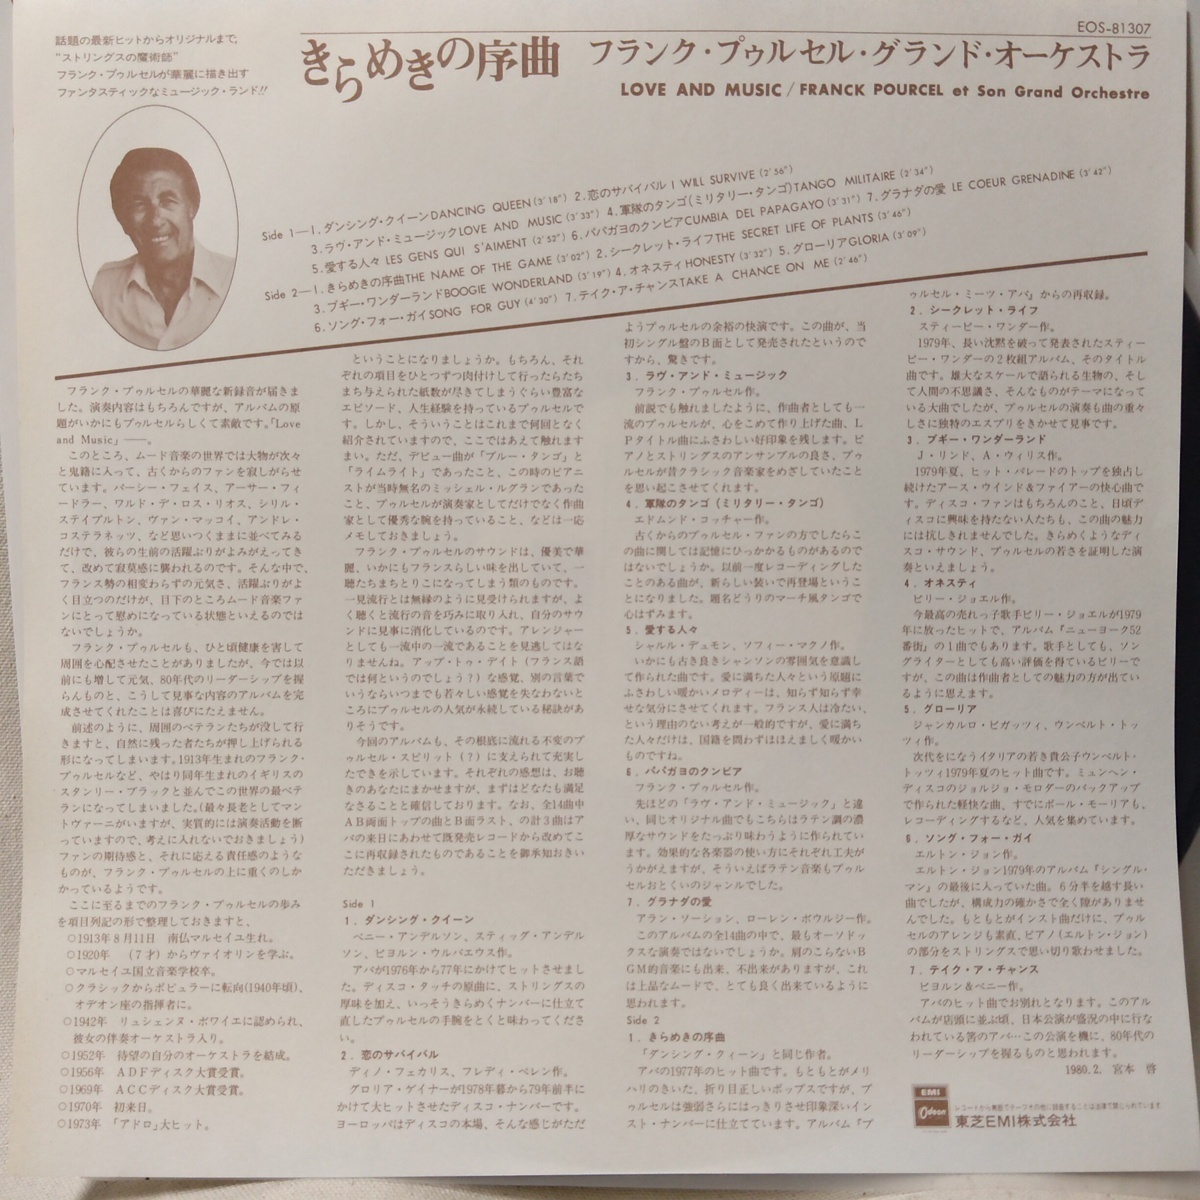 EOS-81307
話題の最新ヒットからオリジナルまで,
“ストリングスの魔術師”
フランク・プゥルセルが華麗に描き出す
ファンタスティックなミュージック・ランド!!
きらめきの序曲 フランク・プゥルセル・グランド・オーケストラ
LOVE AND MUSIC / FRANCK POURCEL et Son Grand Orchestre
Side 1—1. ダンシング・クイーン DANCING QUEEN (3'18") 2. 恋のサバイバル I WILL SURVIVE (2'56")
3. ラヴ・アンド・ミュージック LOVE AND MUSIC (3'33") 4. 軍隊のタンゴ(ミリタリー・タンゴ) TANGO MILITAIRE (2'34")
5. 愛する人々 LES GENS QUI S'AIMENT (2'52") 6. パパガヨのクンビア CUMBIA DEL PAPAGAYO (3'31") 7. グラナダの愛 LE COEUR GRENADINE (3'42")
Side 2—1. きらめきの序曲 THE NAME OF THE GAME (3'02") 2. シークレット・ライフ THE SECRET LIFE OF PLANTS (3'46")
3. ブギー・ワンダーランド BOOGIE WONDERLAND (3'19") 4. オネスティ HONESTY (3'32") 5. グローリア GLORIA (3'09")
6. ソング・フォー・ガイ SONG FOR GUY (4'30") 7. テイク・ア・チャンス TAKE A CHANCE ON ME (2'46")
フランク・プゥルセルの華麗な新録音が届きま
した。演奏内容はもちろんですが、アルバムの原
題がいかにもプゥルセルらしくて素敵です。「Love
and Music」——。
このところ、ムード音楽の世界では大物が次々
と鬼籍に入って、古くからのファンを寂しがらせ
ています。パーシー・フェイス、アーサー・フィ
ードラー、ワルド・デ・ロス・リオス、シリル・
ステイプルトン、ヴァン・マッコイ、アンドレ・
コステラネッツ、など思いつくままに並べてみる
だけで、彼らの生前の活躍ぶりがよみがえってき
て、改めて寂寞感に襲われるのです。そんな中で、
フランス勢の相変わらずの元気さ、活躍ぶりがよ
く目立つのだけが、目下のところムード音楽ファ
ンにとって慰めになっている状態といえるのでは
ないでしょうか。
フランク・プゥルセルも、ひと頃健康を害して
周囲を心配させたことがありましたが、今では以
前にも増して元気、80年代のリーダーシップを握
らんものと、こうして見事な内容のアルバムを完
成させてくれたことは喜びにたえません。
前述のように、周囲のベテランたちが没して行
きますと、自然に残った者たちが押し上げられる
形になってしまいます。1913年生まれのフランク・
プゥルセルなど、やはり同年生まれのイギリスの
スタンリー・ブラックと並んでこの世界の最ベテ
ランになってしまいました。(最々長老としてマン
トヴァーニがいますが、実質的には演奏活動を断
っていますので、考えに入れないでおきましょう)
ファンの期待感と、それに応える責任感のような
ものが、フランク・プゥルセルの上に重くのしか
かっているようです。
ここに至るまでのフランク・プゥルセルの歩み
を項目列記の形で整理しておきますと、
○1913年8月11日 南仏マルセイユ生れ。
○1920年 (7才)からヴァイオリンを学ぶ。
○マルセイユ国立音楽学校卒。
○クラシックからポピュラーに転向(1940年頃)、
オデオン座の指揮者に。
○1942年 リュシェンヌ・ボワイエに認められ、
彼女の伴奏オーケストラ入り。
○1952年 待望の自分のオーケストラを結成。
○1956年 ADFディスク大賞受賞。
○1969年 ACCディスク大賞受賞。
○1970年 初来日。
○1973年 「アドロ」大ヒット。
ということになりましょうか。もちろん、それ
ぞれの項目をひとつずつ肉付けして行ったらたち
まち与えられた紙数が尽きてしまうぐらい豊富な
エピソード、人生経験を持っているプゥルセルで
す。しかし、そういうことはこれまで何回となく
紹介されていますので、ここではあえて触れます
まい。ただ、デビュー曲が「ブルー・タンゴ」と
「ライムライト」であったこと、この時のピアニ
ストが当時無名のミッシェル・ルグランであった
こと、プゥルセルが演奏家としてだけでなく作曲
家として優秀な腕を持っていること、などは一応
メモしておきましょう。
フランク・プゥルセルのサウンドは、優美で華
麗、いかにもフランスらしい味を出していて、一
聴たちまちとりこになってしまう類のものです。
一見流行とは無縁のように見受けられますが、よ
く聴くと流行の音を巧みに取り入れ、自分のサウ
ンドに見事に消化しているのです。アレンジャー
としても一流中の一流であることを見逃してはな
りませんね。アップ・トゥ・デイト(フランス語
では何というのでしょう?)な感覚、別の言葉で
いうならいつまでも若々しい感覚を失なわないと
ころにプゥルセルの人気が永続している秘訣があ
りそうです。
今回のアルバムも、その根底に流れる不変のプ
ゥルセル・スピリット(?)に支えられて充実し
たできを示しています。それぞれの感想は、お聴
きのあなたにまかせますが、まずはどなたも満足
なさることと確信しております。なお、全14曲中
AB両面トップの曲とB面ラスト、の計3曲はア
バの来日にあわせて既発売レコードから改めてこ
こに再収録されたものであることを御承知おきい
ただきましょう。
Side 1
1. ダンシング・クイーン
ベニー・アンデルソン、スティッグ・アンデル
ソン、ビヨルン・ウルバエウス作。
アバが1976年から77年にかけてヒットさせまし
た。ディスコ・タッチの原曲に、ストリングスの
厚味を加え、いっそうきらめくナンバーに仕立て
直したプゥルセルの手腕をとくと味わってくださ
い。
2. 恋のサバイバル
ディノ・フェカリス、フレディ・ペレン作。
グロリア・ゲイナーが1978年暮から79年前半に
かけて大ヒットさせたディスコ・ナンバーです。
ヨーロッパはディスコの本場、そんな感じがただ
ようプゥルセルの余裕の快演です。この曲が、当
初シングル盤のB面として発売されたというので
すから、驚きです。
3. ラヴ・アンド・ミュージック
フランク・プゥルセル作。
前説でも触れましたように、作曲者としても一
流のプゥルセルが、心をこめて作り上げた曲、L
Pタイトル曲にふさわしい好印象を残します。ピ
アノとストリングスのアンサンブルの良さ、プゥ
ルセルが昔クラシック音楽家をめざしていたこと
を思い起こさせてくれます。
4. 軍隊のタンゴ(ミリタリー・タンゴ)
エドムンド・コッチャー作。
古くからのプゥルセル・ファンの方でしたらこ
の曲に関しては記憶にひっかかるものがあるので
はないでしょうか。以前一度レコーディングした
ことのある曲が、新らしい装いで再登場というこ
とになりました。題名どうりのマーチ風タンゴで
心はずみます。
5. 愛する人々
シャルル・デュモン、ソフィー・マクノ作。
いかにも古き良きシャンソンの雰囲気を意識し
て作られた曲です。愛に満ちた人々という原題に
ふさわしい暖かいメロディーは、知らず知らず幸
せな気分にさせてくれます。フランス人は冷たい、
という理由のない考えが一般的ですが、愛に満ち
た人々だけは、国籍を問わずほほえましく暖かい
ものですね。
6. パパガヨのクンビア
フランク・プゥルセル作。
先ほどの「ラヴ・アンド・ミュージック」と違
い、同じオリジナル曲でもこちらはラテン調の濃
厚なサウンドをたっぷり味わうように作られてい
ます。効果的な各楽器の使い方にそれぞれ工夫が
うかがえますが、そういえばラテン音楽もプゥル
セルおとくいのジャンルでした。
7. グラナダの愛
アラン・ソーション、ローレン・ボウルジー作。
このアルバムの全14曲の中で、最もオーソドッ
クスな演奏ではないでしょうか。肩のこらないB
GM的音楽にも出来、不出来がありますが、これ
は上品なムードで、とても良く出来ているように
思われます。
Side 2
1. きらめきの序曲
「ダンシング・クィーン」と同じ作者。
アバの1977年のヒット曲です。もともとがメリ
ハリのきいた、折り目正しいポップスですが、プ
ゥルセルは強弱さらにはっきりさせ印象深いイン
スト・ナンバーに仕立てています。アルバム『プ
ゥルセル・ミーツ・アバ』からの再収録。
2. シークレット・ライフ
スティービー・ワンダー作。
1979年、長い沈黙を破って発表されたスティー
ビー・ワンダーの2枚組アルバム、そのタイトル
曲です。雄大なスケールで語られる生物の、そし
て人間の不思議さ、そんなものがテーマになって
いる大曲でしたが、プゥルセルの演奏も曲の重々
しさに独特のエスプリをきかせて見事です。
3. ブギー・ワンダーランド
J・リンド、A・ウィリス作。
1979年夏、ヒット・パレードのトップを独占し
続けたアース・ウインド&ファイアーの快心曲で
す。ディスコ・ファンはもちろんのこと、日頃デ
ィスコに興味を持たない人たちも、この曲の魅力
には抗しきれませんでした。きらめくようなディ
スコ・サウンド、プゥルセルの若さを証明した演
奏といえましょう。
4. オネスティ
ビリー・ジョエル作。
今最高の売れっ子歌手ビリー・ジョエルが1979
年に放ったヒットで、アルバム『ニューヨーク52
番街』の1曲でもあります。歌手としても、ソン
グライターとしても高い評価を得ているビリーで
すが、この曲は作曲者としての魅力の方が出てい
るように思えます。
5. グローリア
ジャンカルロ・ビガッツィ、ウンベルト・トッ
ツィ作。
次代をになうイタリアの若き貴公子ウンベルト・
トッツィ1979年夏のヒット曲です。ミュンヘン・
ディスコのジョルジョ・モロダーのバックアップ
で作られた軽快な曲、すでにポール・モーリアも、
レコーディングするなど、人気を集めています。
6. ソング・フォー・ガイ
エルトン・ジョン作。
エルトン・ジョン1979年のアルバム『シングル・
マン』の最後に入っていた曲。6分半を越す長い
曲でしたが、構成力の確かさで全く隙がありませ
んでした。もともとがインスト曲だけに、プゥル
セルのアレンジも素直、ピアノ(エルトン・ジョン)
の部分をストリングスで思い切り歌わせました。
7. テイク・ア・チャンス
ビヨルン&ベニー作。
アバのヒット曲でお別れとなります。このアル
バムが店頭に並ぶ頃、日本公演が盛況の中に行な
われている筈のアバ…この公演を機に、80年代の
リーダーシップを握るものと思われます。
1980. 2. 宮本 啓
EMI
Odeon
レコートから無断でテープその他に録音することは法律で禁じられています
東芝EMI株式会社